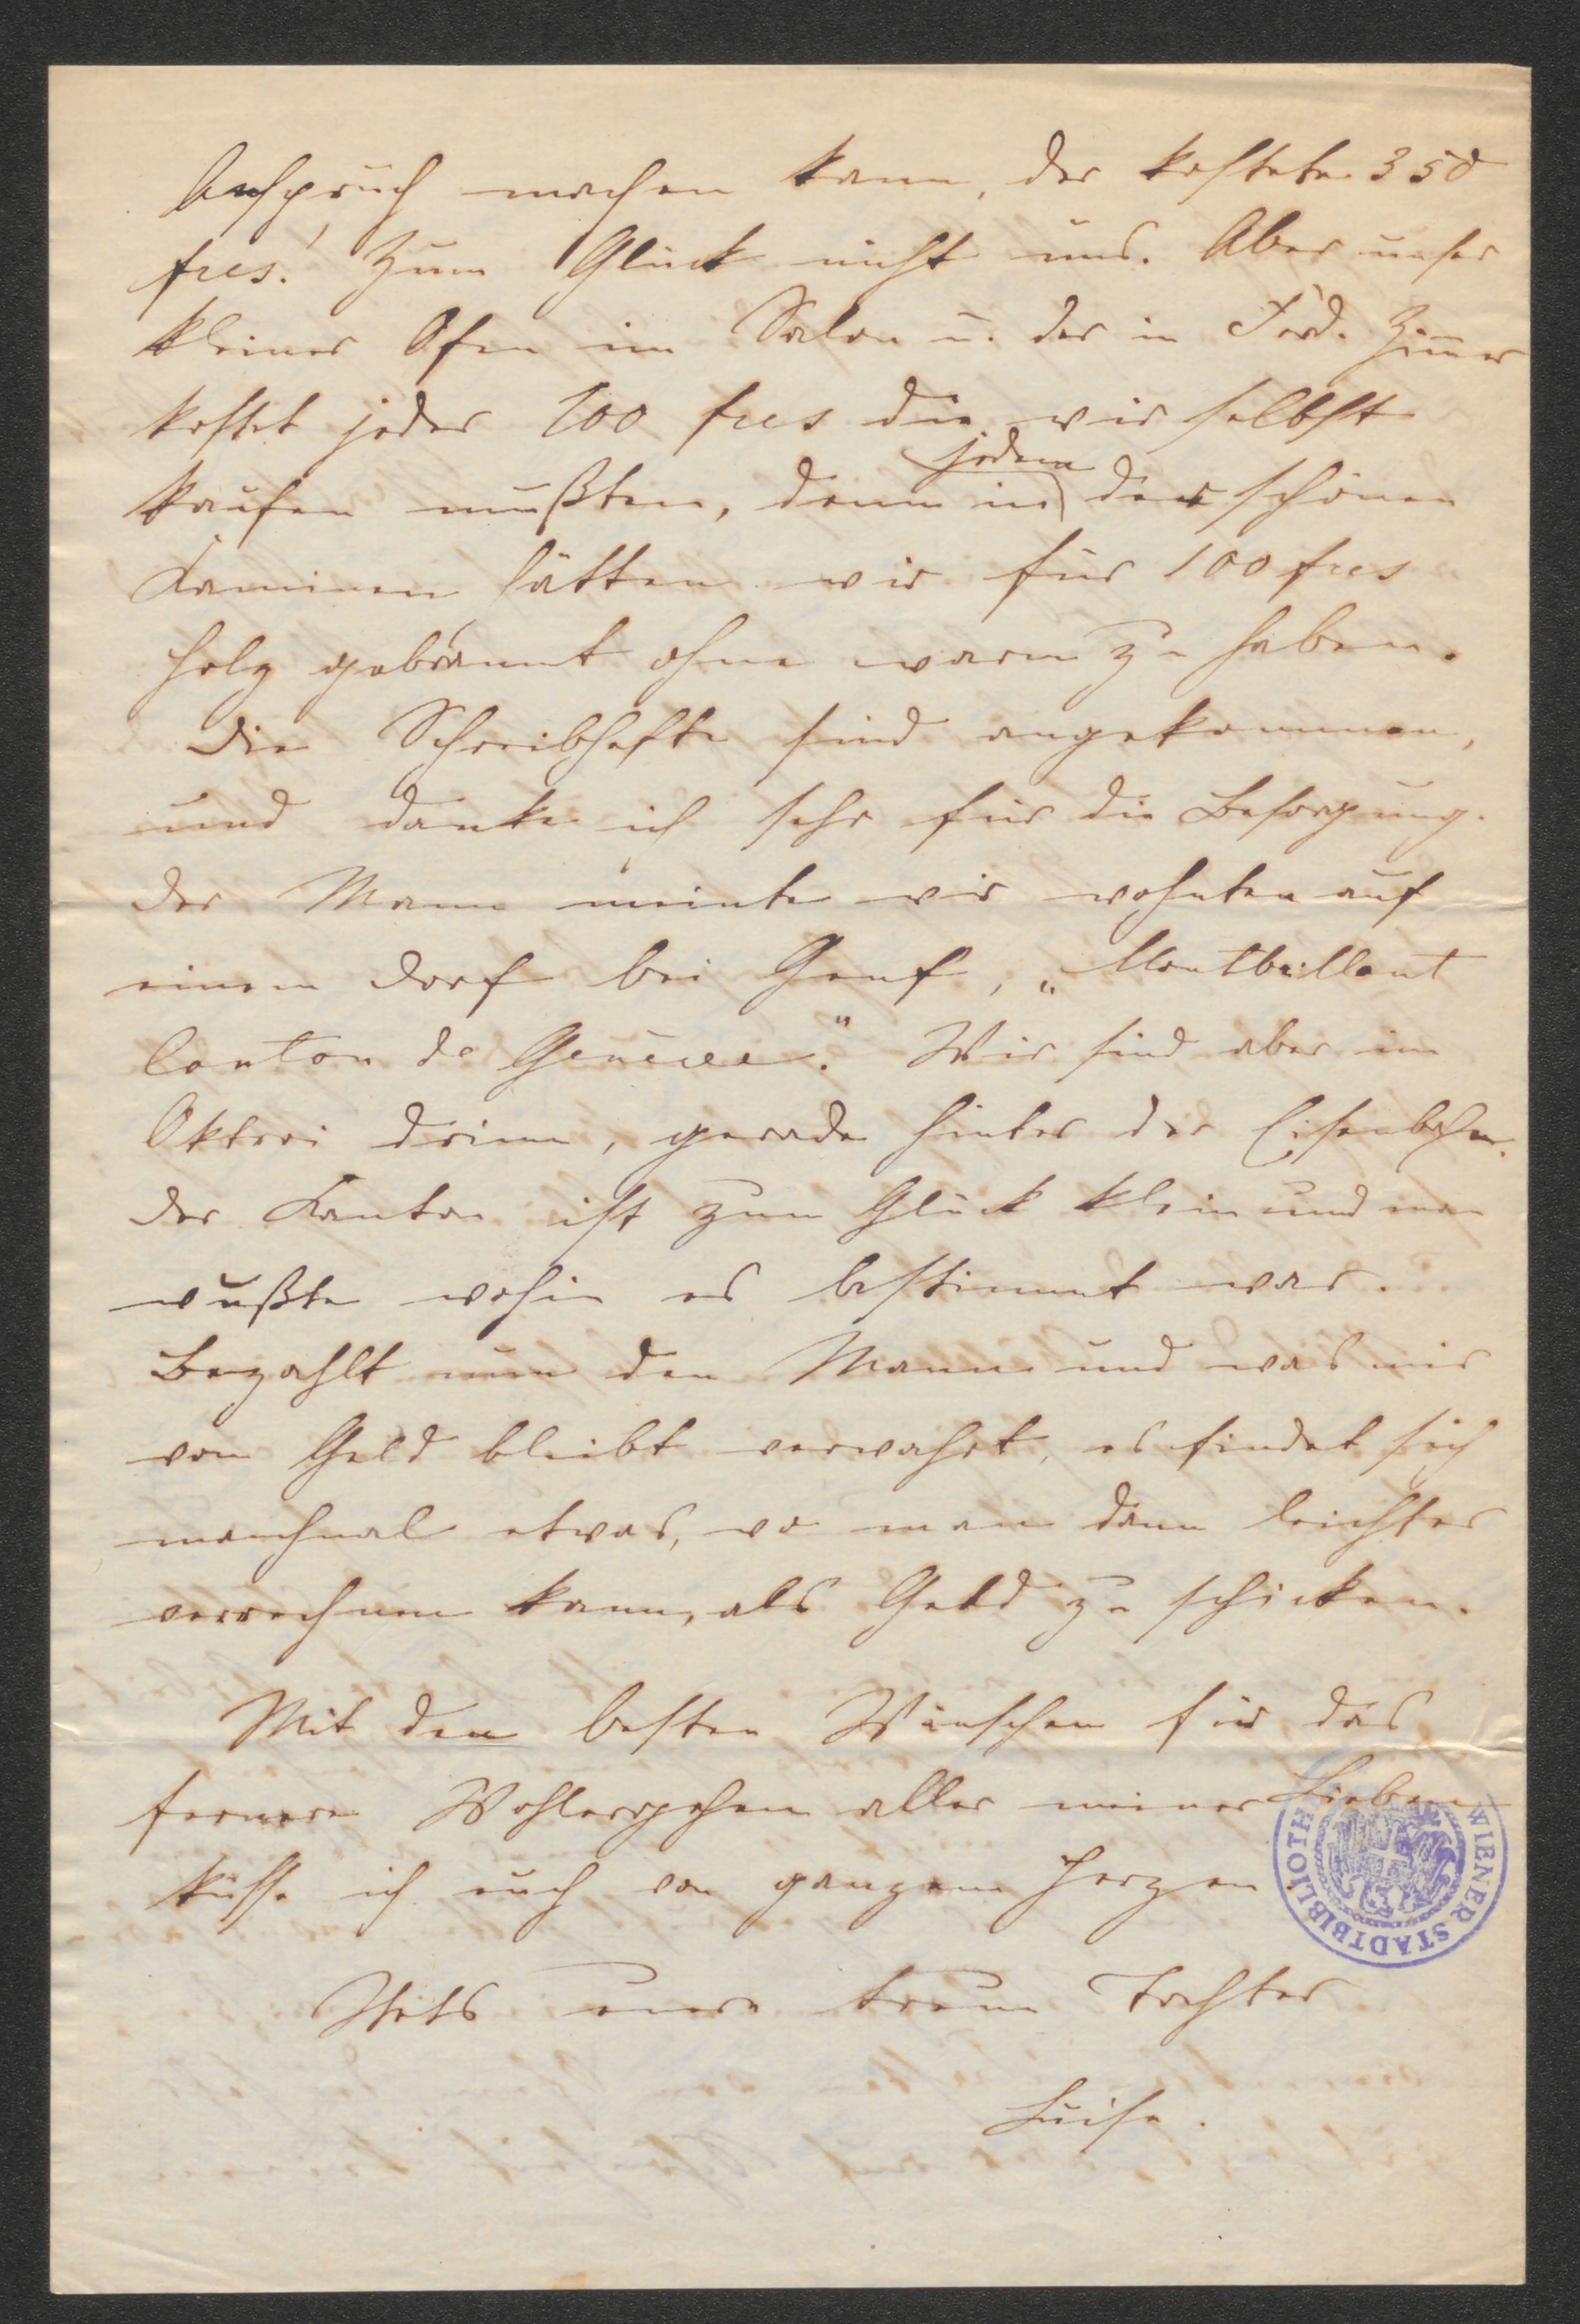 Anspruch machen kann, der kostete 350
frcs! Zum Glück nicht uns. Aber unser
kleiner Ofen im Salon u. der in Ferd. Zimer
kostet jeder 100 frcs die wir selbst
kaufen mußten, denn in jedem der schönen
Kaminen hätten wir für 100 frcs
Holz gebrannt ohne warm zu haben.
Die Schreibhefte sind angekommen,
und danke ich sehr für die Besorgung.
Der Mann meinte wir wohnten auf
einem Dorf bei Genf, „Montbrillant
Canton de Genève." Wir sind aber im
Oktroi drinn, gerade hinter der Eisenbahn.
Der Kanton ist zum Glück klein und man
wußte wohin es bestimmt war.
Bezahlt nun den Mann und was mir
vom Geld bleibt verwahrt, es findet sich
manchmal etwas, wo man dann leichter
verrechnen kann, als Geld zu schicken.
Mit den besten Wünschen für das
fernere Wohlergehen aller meiner Lieben
küsse ich euch von ganzem Herzen
Stets eure treue Tochter
Luise.
WIENER STADTBIBLIOTH